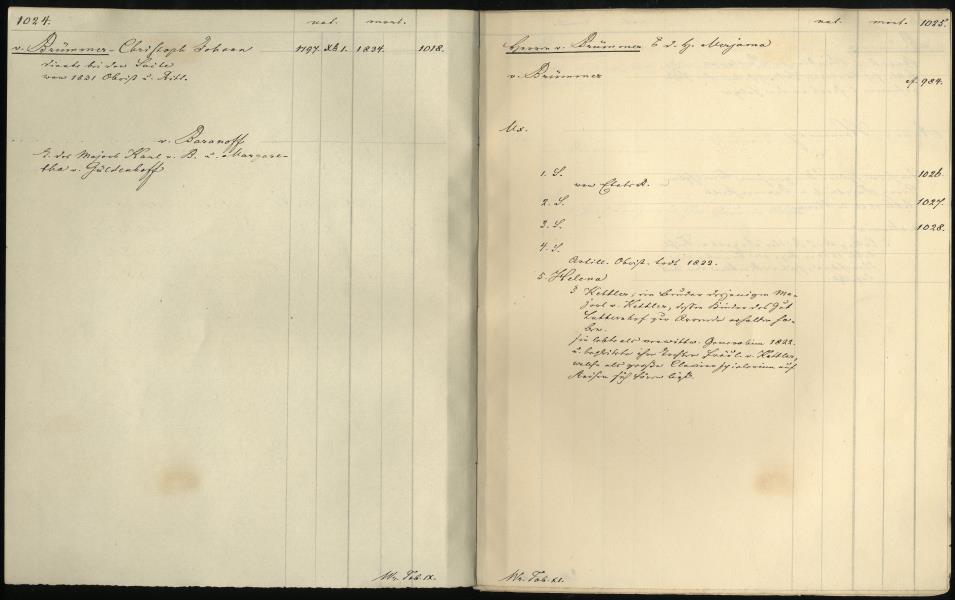 1024.
nat. mort.
v. Brümmer - Christoph Johann 1797. XII 1. 1834. 1018.
diente bei der Suite
von 1831 Obrist u. Ritt.
v. Baranoff
T. des Majors Karl v. B. u. Margare-
tha v. Güldenhoff
Mr. Tab. IX.
nat. mort. 1025.
Herrn v. Brümmer E. d. H. Marjama
v. Brümmer cf. 984.
Ux.
1. S. 1026.
von Etats R.
2. S. 1027.
3. S. 1028.
4. S.
Artill. Obrist. todt 1822.
5. Helena
Kettler, ein Bruder desjenigen Ma-
jors v. Kettler, dessen Kinder das Gut
zur Arrende erhalten ha-
ben.
sie lebte als verwittw. Generalin 1822.
u. begleitete ihre Tochter Fräul. v. Kettler,
welche als große Clavierspielerin auf
Reisen sich hören ließ.
Mr. Tab. XI.